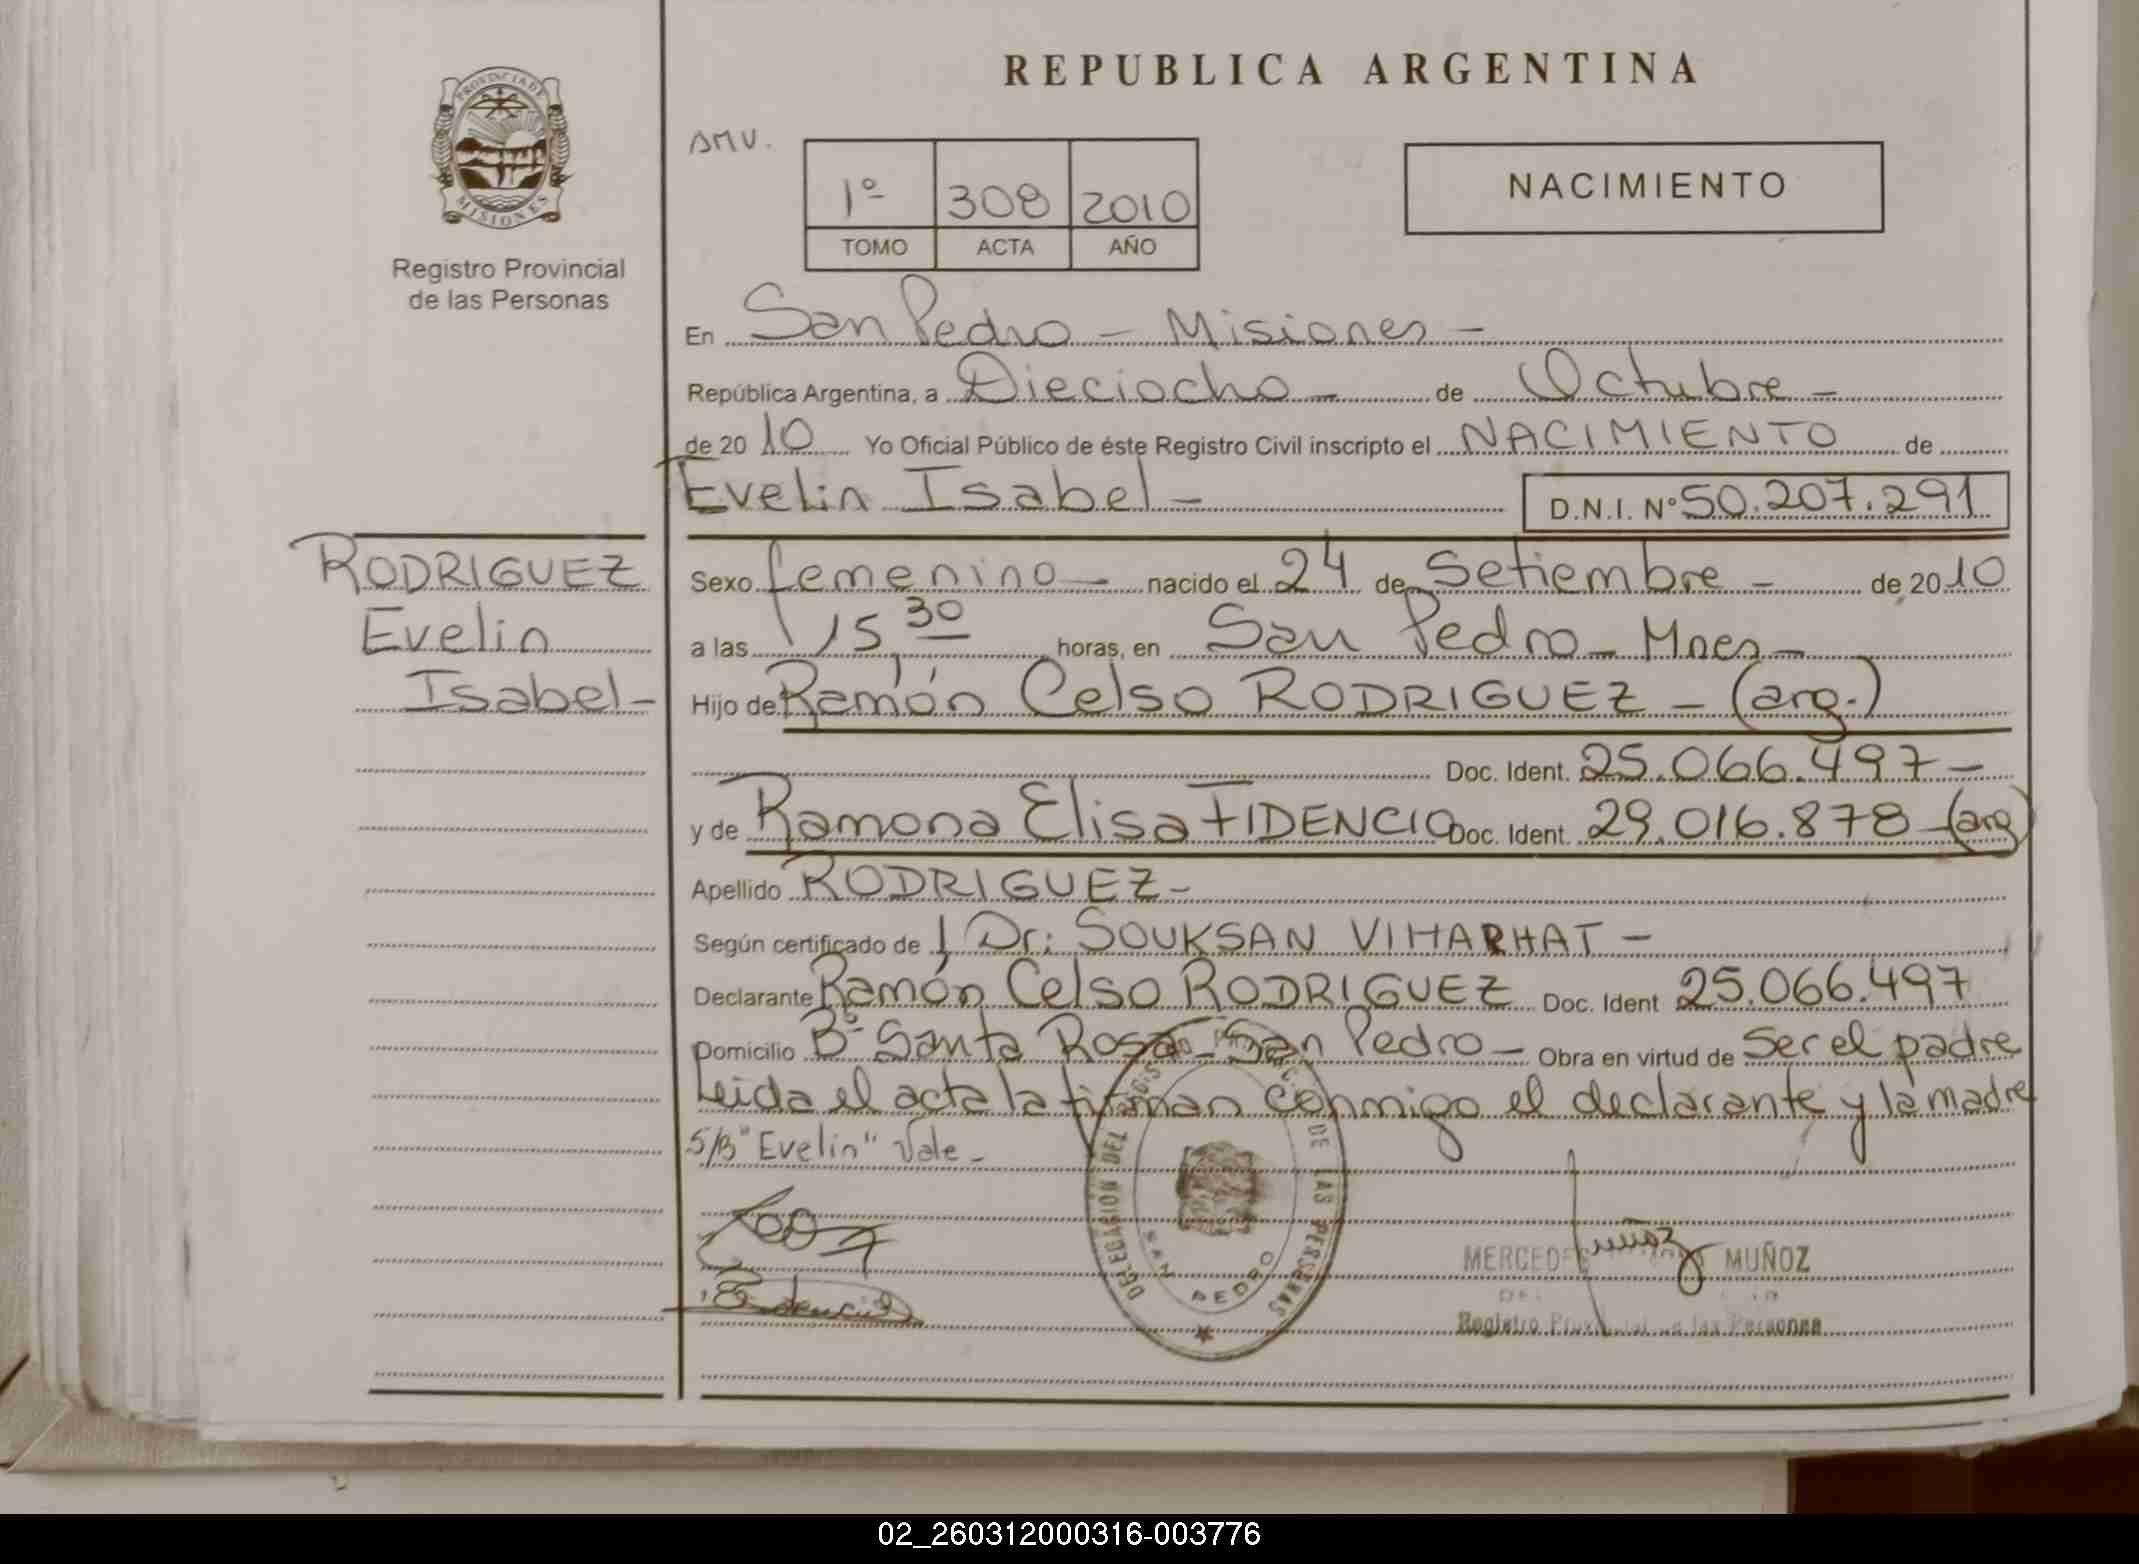 REPUBLICA ARGENTINA
PROVINCIA DE
MISIONES
Registro Provincial
de las Personas
AMV.
1º 308 2010
TOMO ACTA AÑO
NACIMIENTO
En San Pedro - Misiones -
República Argentina, a Dieciocho - de Octubre -
de 2010 Yo Oficial Público de éste Registro Civil inscripto el NACIMIENTO de
Evelin Isabel - D.N.I. Nº 50.207.291
RODRIGUEZ
Evelin
Isabel -
Sexo femenino - nacido el 24 de Setiembre - de 2010
a las 15,30 horas, en San Pedro - Mnes -
Hijo de Ramón Celso RODRIGUEZ - (arg.)
Doc. Ident. 25.066.497 -
y de Ramona Elisa FIDENCIO Doc. Ident. 29.016.878 - (arg)
Apellido RODRIGUEZ -
Según certificado de Dr: SOUKSAN VIHARHAT -
Declarante Ramón Celso RODRIGUEZ Doc. Ident 25.066.497
Domicilio Bº Santa Rosa - San Pedro - Obra en virtud de Ser el padre
Leida el acta la firman conmigo el declarante y la madre
S/B "Evelin" Vale -
DELEGACIÓN DEL DE LAS PERSONAS
SAN PEDRO
MUÑOZ
Registro Provincial de las Personas
02_260312000316-003776